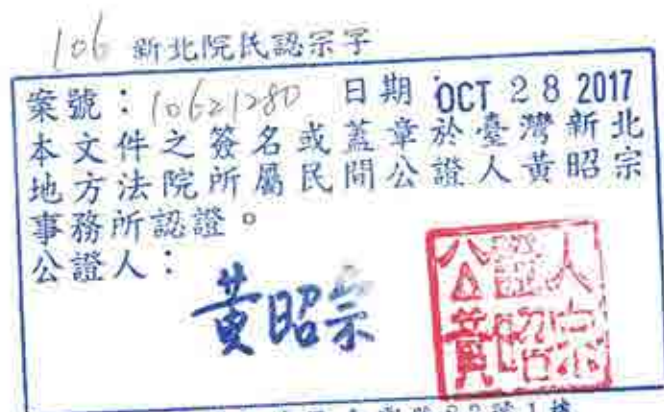 106 新北院民認宗字
案號：10621280 日期：OCT 28 2017
本文件之簽名或蓋章於臺灣新北
地方法院所屬民間公證人黃昭宗
事務所認證。
公證人：
黃昭宗
公證人
黃昭宗
號1樓